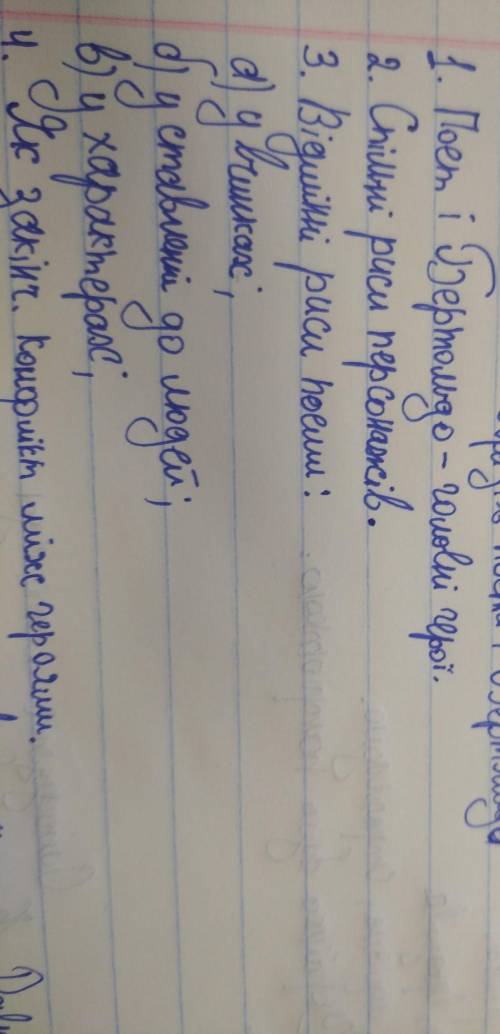 Бертольдо
1. Поет і Бертольдо - головні герої.
2. Спільні риси персонажів.
3. Відмінні риси поеми:
а) у вчинках;
б) у ставленні до людей;
в) у характерах;
4. Як закінч. конфлікт між героями.